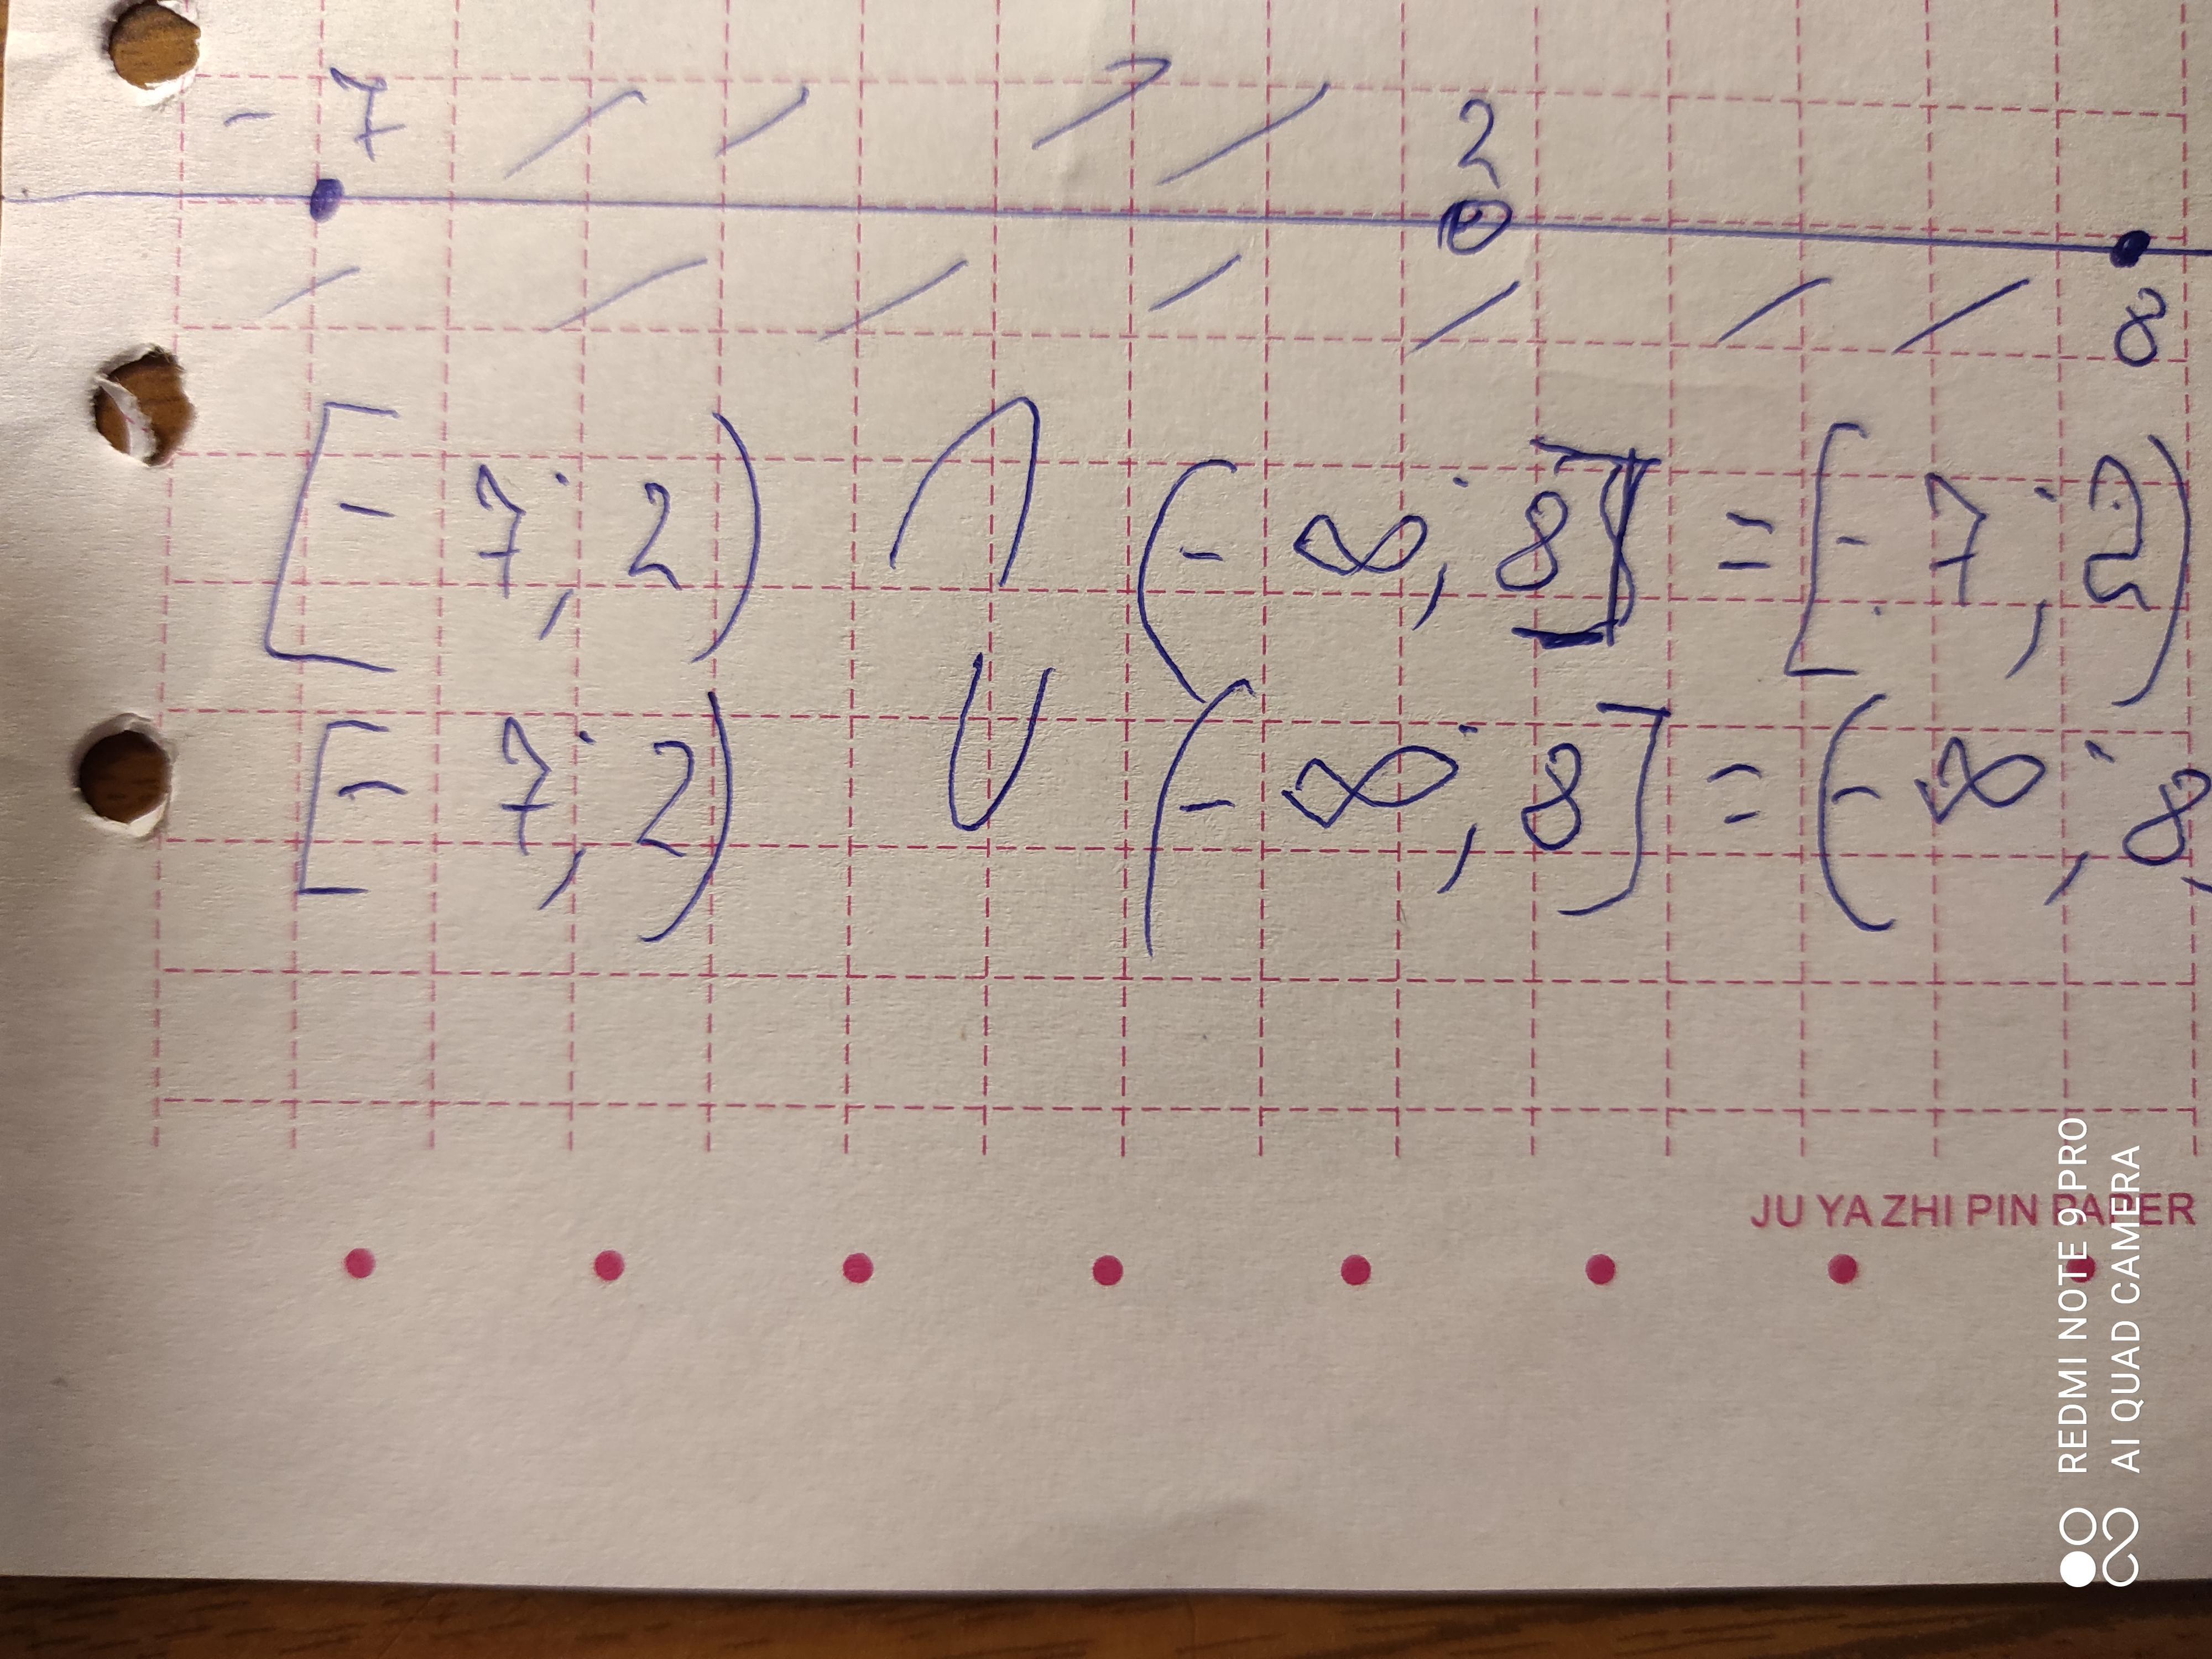 - 7 2
8
[- 7; 2) ∩ (- ∞; 8] = [- 7; 2)
[- 7; 2) ∪ (- ∞; 8] = (- ∞; 8
JU YA ZHI PIN PAPER
REDMI NOTE 9 PRO
AI QUAD CAMERA